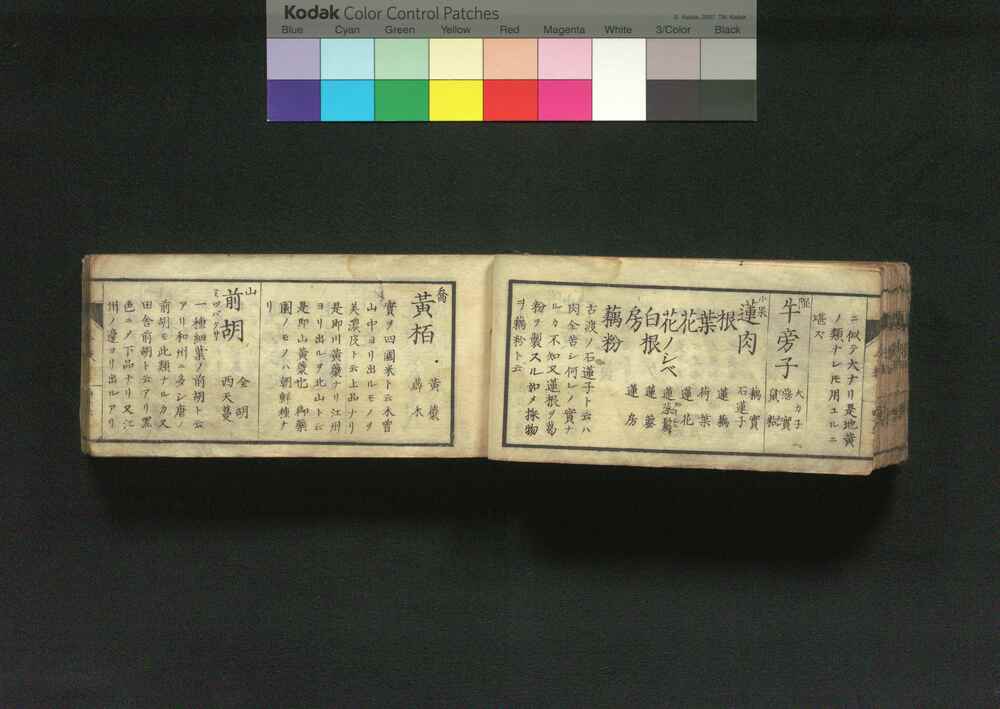 Kodak Color Control Patches
© Kodak, 2007 TM: Kodak
Blue Cyan Green Yellow Red Magenta White 3/Color Black
ニ似テ大ナリ是地黄
ノ類ナレモ用ユルニ
堪ス
牛旁子
大カ子
悪實
鼠粘
小果
蓮肉
藕實
石蓮子
根 蓮藕
葉 荷葉
花 蓮花
花ノシベ
白根
房 蓮房
藕粉
古渡ノ石蓮子ト云ハ
肉全苦シ何レノ實ナ
ルカ不知又蓮根ヲ
粉ヲ製スル如メ採物
ヲ藕粉ト云
喬
黄栢
黄蘗
實ヲ四國米ト云木曽
山中ヨリ出ルモノヲ
美濃皮ト云上品ナリ
是即川黄蘗ナリ江州
ヨリ出ルヲ北山ト云
是即山黄蘗也 御藥
園ノモノハ朝鮮種ナ
リ
山
前胡
全胡
西天蔓
一種細葉ノ前胡ト云
アリ和州ニ多シ唐ノ
前胡モ此類ナルカ又
田舎前胡ト云アリ黒
色ニノ下品ナリ又江
州ノ邉ヨリ出ルアリ